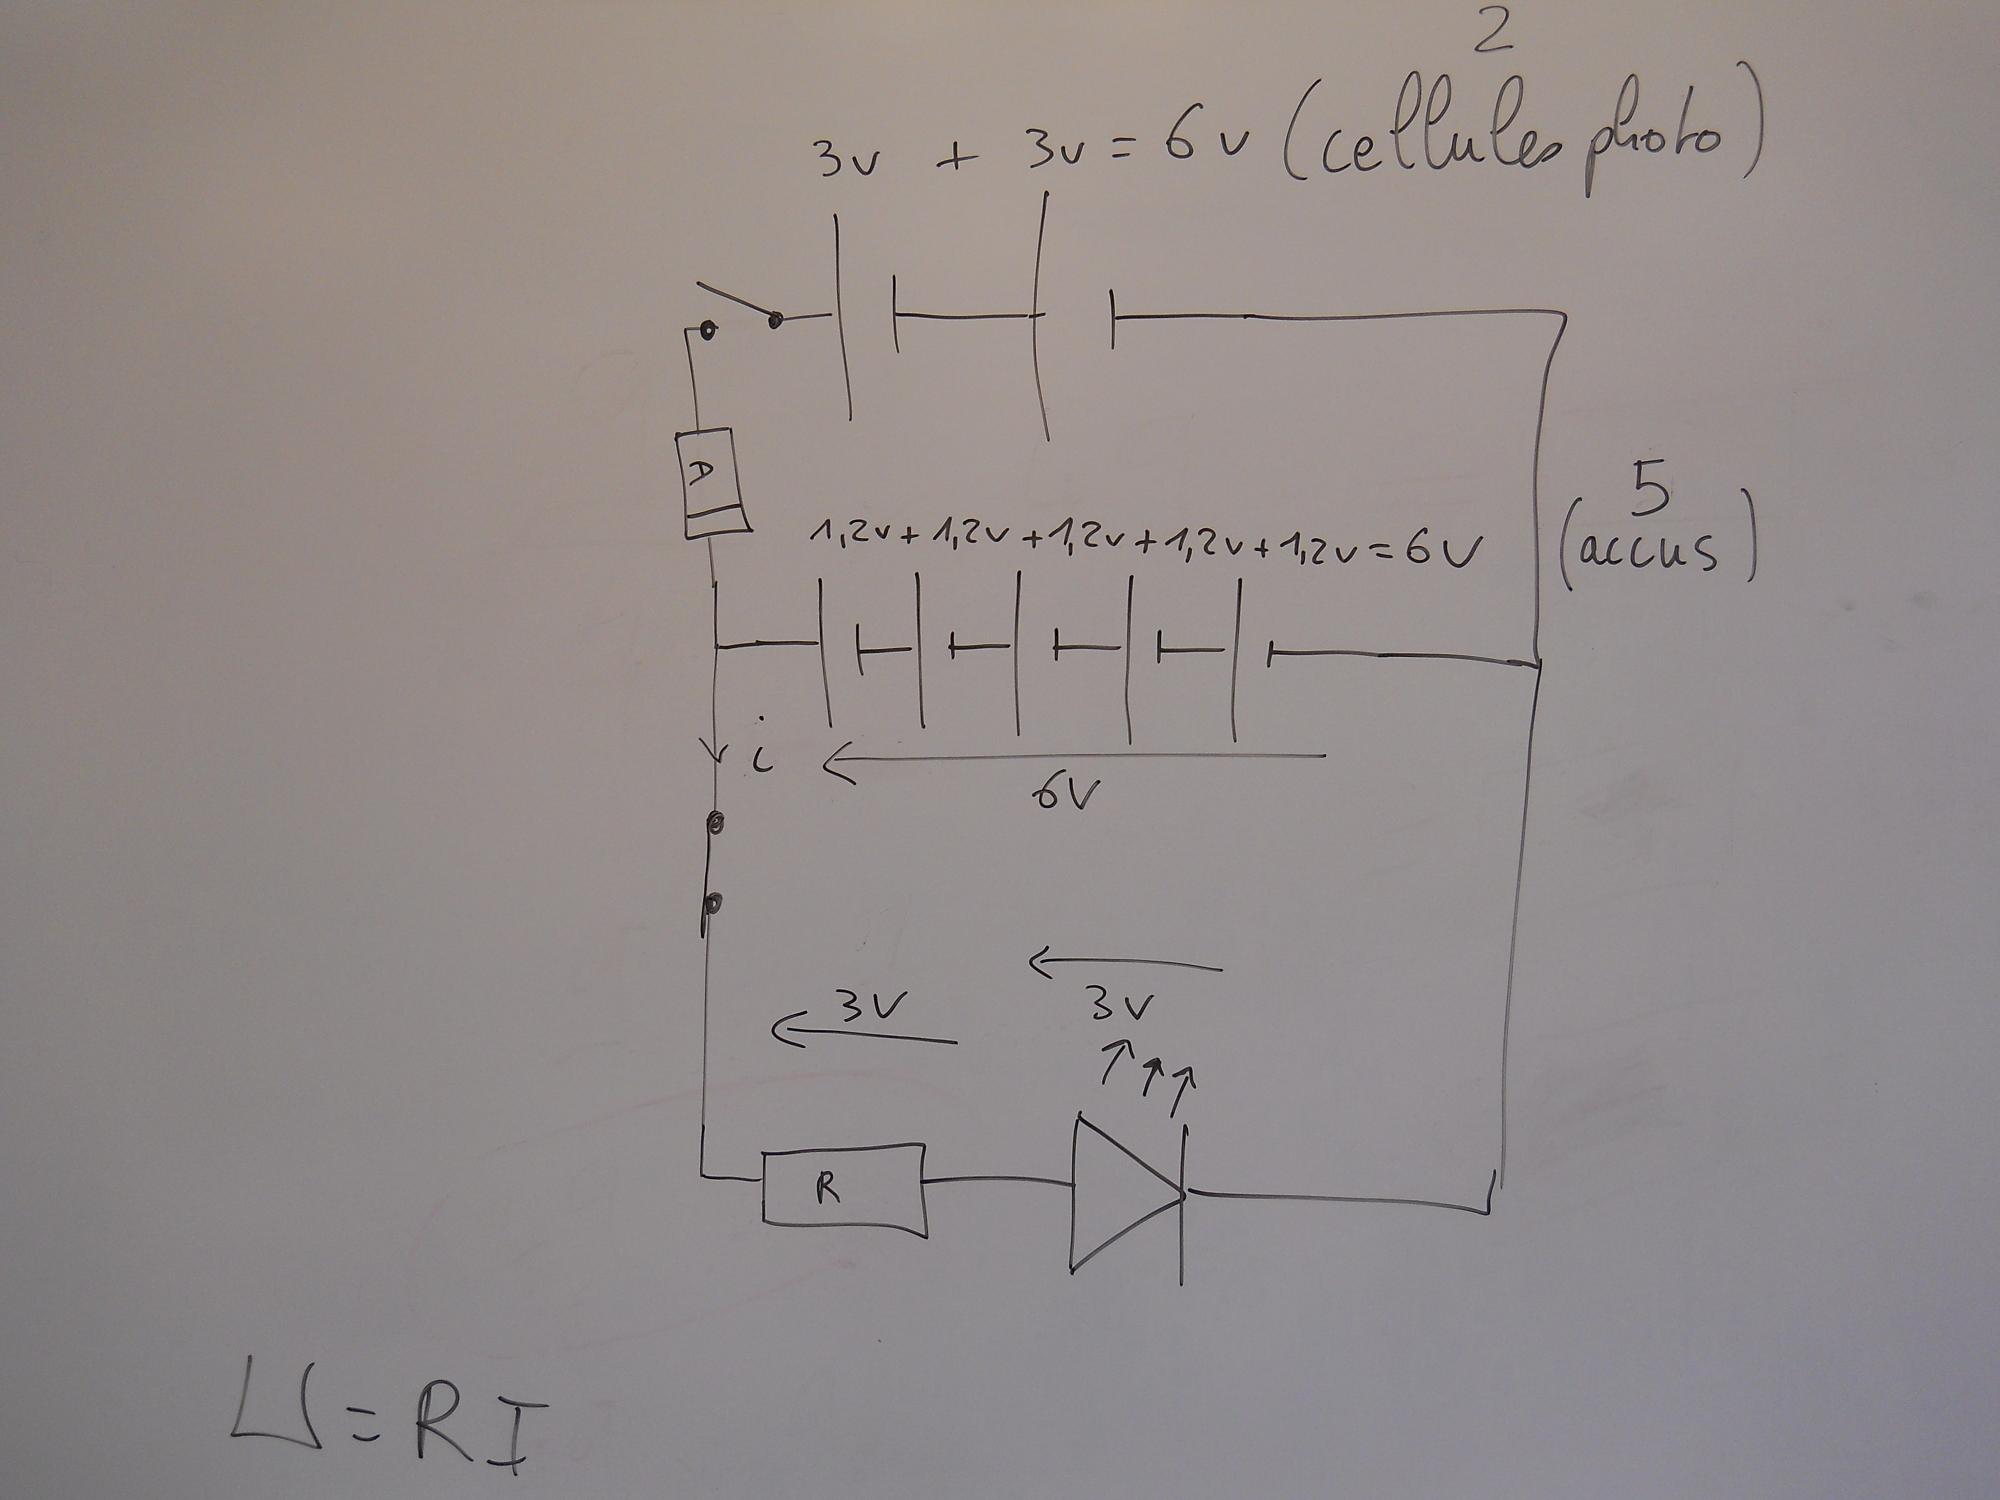 2
3v + 3v = 6v (cellules photo)
A
1,2v + 1,2v + 1,2v + 1,2v + 1,2v = 6V
5
(accus)
i
6V
3V
3V
R
U = RI